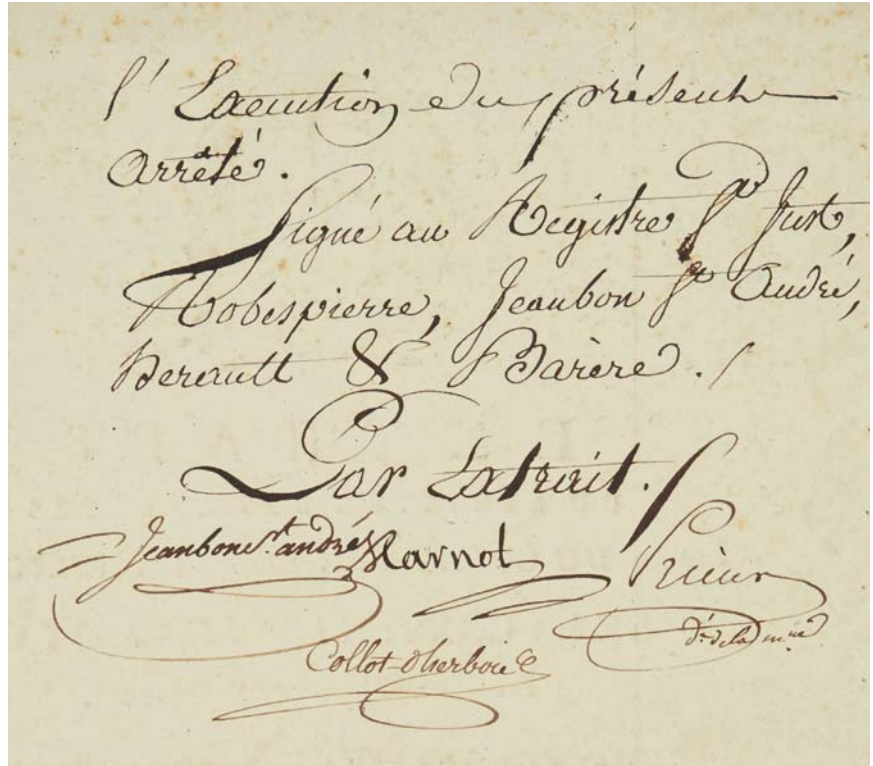 l'Execution du présent
Arrêté.
Signé au Registre St Just,
Robespierre, Jeanbon St André,
Herault & Barère.
Par Extrait.
Jeanbon St. andré Carnot Prieur
d. de la m.ne
Collot-d'herbois